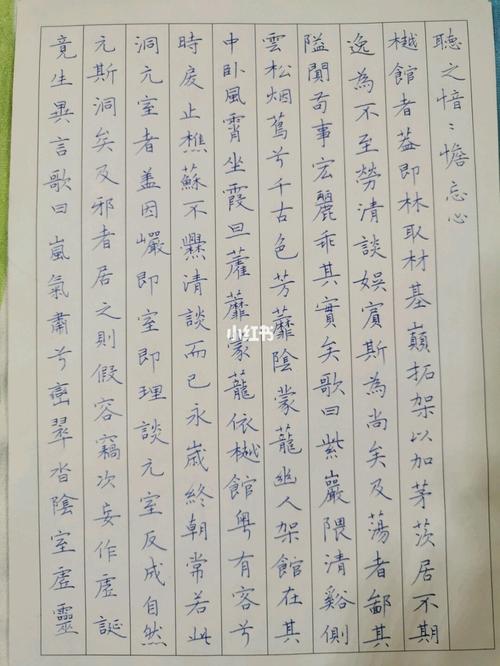 聽之愔〻憺忘心
樾館者蓋即林取材基巔拓架以加茅茨居不期
逸為不至勞清談娛賓斯為尚矣及蕩者鄙其
隘闃苟事宏麗乖其實矣歌曰紫巖隈清谿側
雲松烟蔦兮千古色芳蘼陰蒙蘢幽人架館在其
中臥風霄坐霞旦蘿蘼蒙蘢依樾館粵有客兮
時戾止樵蘇不爨清談而已永歲終朝常若此
洞元室者盖因巖即室即理談元室反成自然
元斯洞矣及邪者居之則假容竊次妄作虛誕
竟生異言歌曰嵐氣肅兮巒翠沓陰室虛靈
小红书